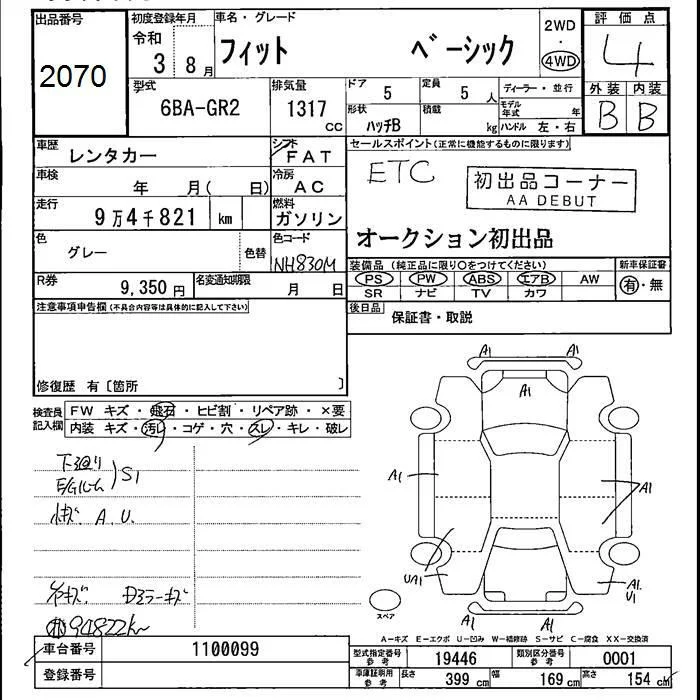 出品番号
2070
初度登録年月
令和
3 8月
車名・グレード
フィット ベーシック
2WD
・
4WD
評価点
4
外装 内装
B B
型式
6BA-GR2
排気量
1317
cc
ドア
5
定員
5 人
ディーラー・並行
形状
ハッチB
積載
kg
モデル年式 年
ハンドル 左・右
車歴
レンタカー
シフト
FAT
車検
年 月( 日)
冷房
AC
走行
9万4千821 km
燃料
ガソリン
色
グレー
色替
色コード
NH830M
R券
9,350 円
名変通知期限
月 日
セールスポイント(正常に機能するものに限ります)
ETC
初出品コーナー
AA DEBUT
オークション初出品
装備品(純正品に限り○をつけてください)
新車保証書
PS PW ABS エアB AW
SR ナビ TV カワ
有・無
後日品
保証書・取説
注意事項申告欄(不具合内容等は具体的に記入して下さい)
修復歴 有〔箇所 〕
検査員
記入欄
FW キズ・飛石・ヒビ割・リペア跡・×要
内装 キズ・汚レ・コゲ・穴・スレ・キレ・破レ
下廻り
E/Gルーム
S1
小キズ A.U.
キズ. Dミラーキズ
94822km
A1 A1
A1
A1
A1
UA1
A1.
U1
A1 A1
スペア
A-キズ E-エクボ U-凹み W-補修跡 S-サビ C-腐食 XX-交換済
車台番号
1100099
登録番号
型式指定番号
参考
19446
類別区分番号
参考
0001
車庫証明用
参考
長さ
399 cm
幅
169 cm
高さ
154 cm